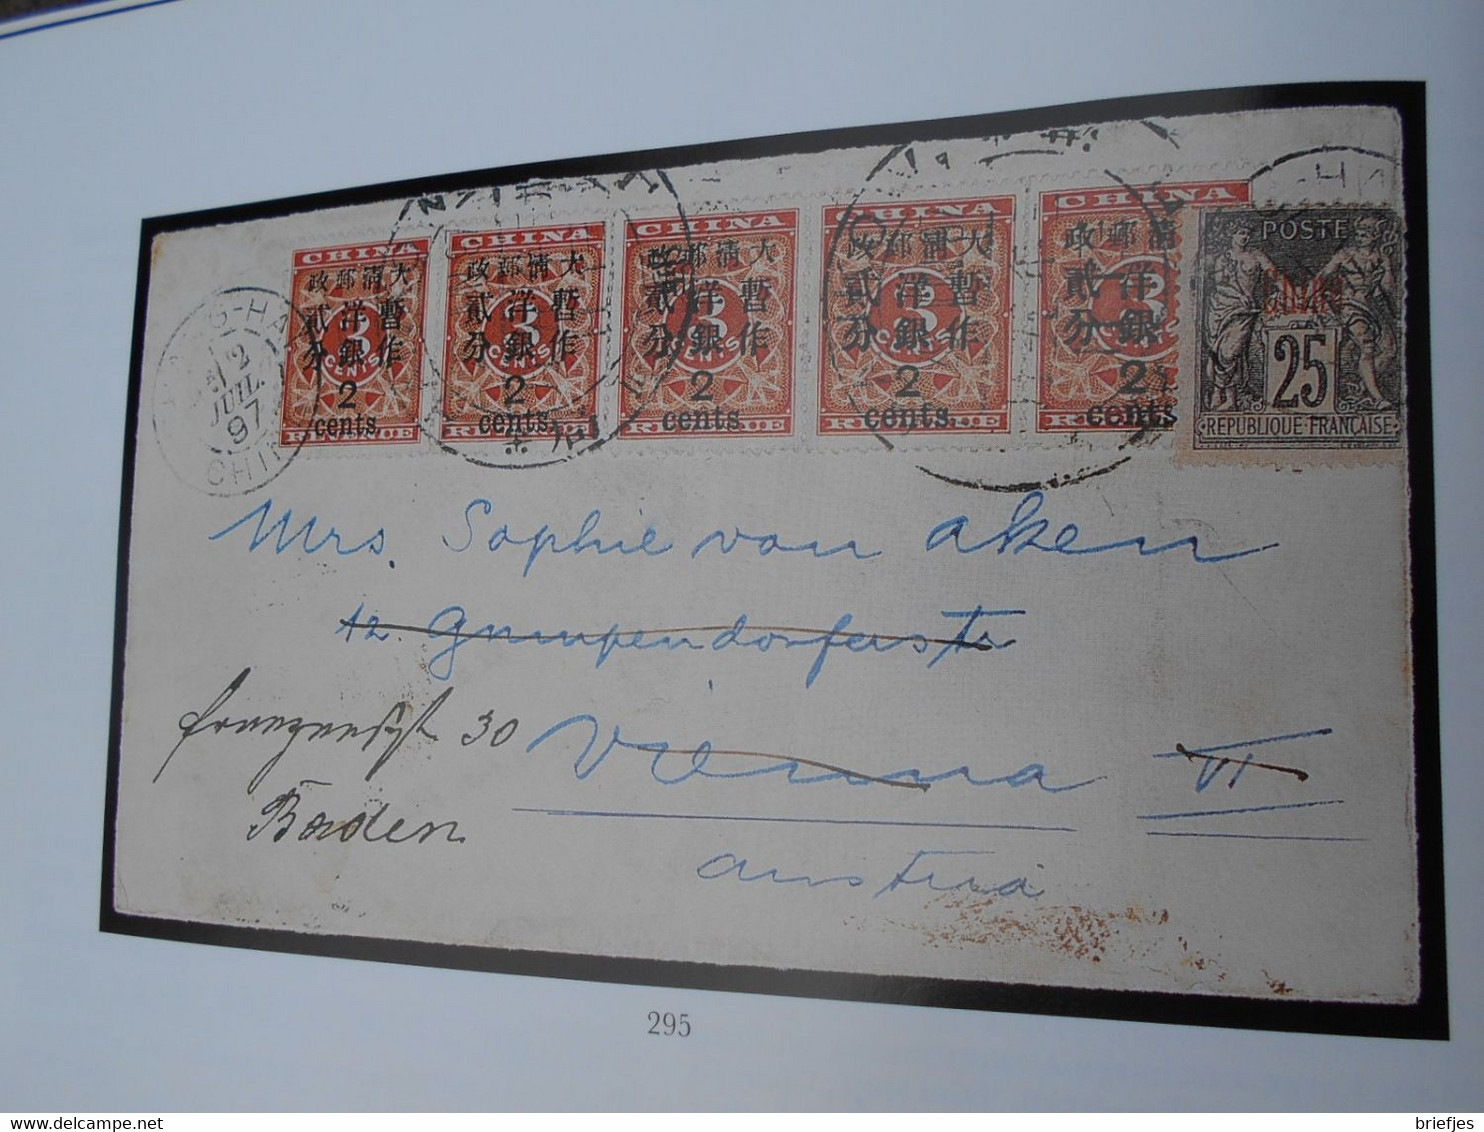 CHINA CHINA CHINA CHINA CHINA
大清郵政 大清郵政 大清郵政 大清郵政 清郵政
暫作洋銀貳分 暫作洋銀貳分 暫作洋銀貳分 暫作洋銀貳分 洋銀貳分
3 3 3 3 3
CENTS
2 2 2 2 2
cents. cents. cents. cents. cents.
REVENUE
POSTE
25
REPUBLIQUE FRANÇAISE
2
JUIL.
97
Mrs. Sophie von Aken
12. Gumpendorferstr
Vienna VI
Austria
30
Baden.
295
www.delcampe.net
briefjes